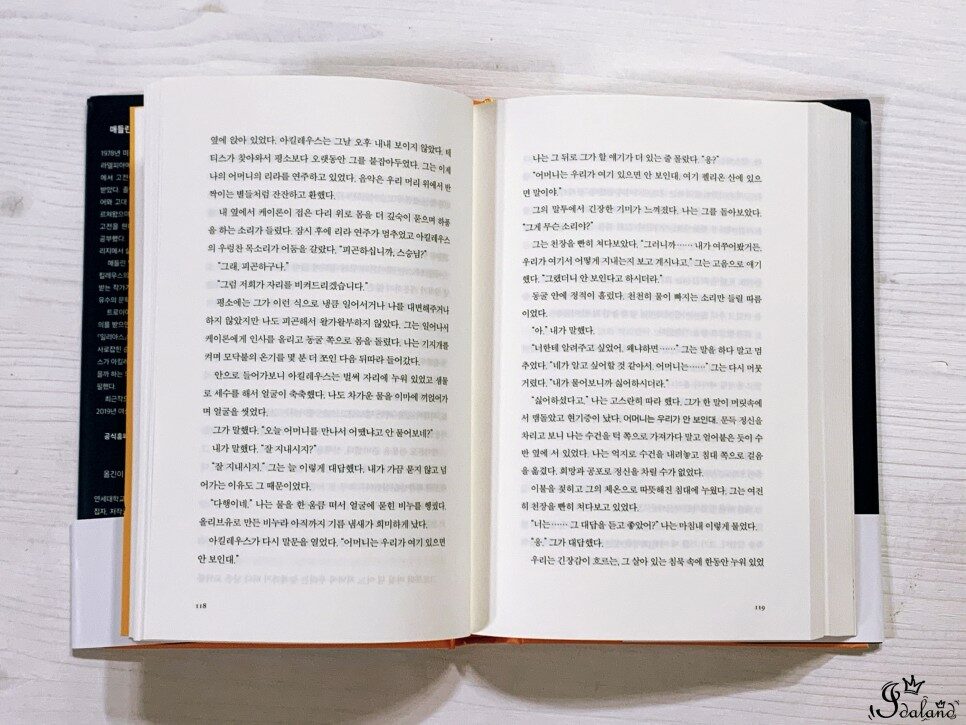 매들린
1978년 미
라델피아에
에서 고전
받았다. 졸
어와 고대
르쳐왔으며
고전을 현
공부했다.
리지에서 살
매들린
킬레우스의
받는 작가
유수의 문학
트로이
의를 받으면
『일리아스』
사로잡힌 순
스가 아킬레
을까 하는
필했다.
최근작으
2019년 여성
공식홈페
옮긴이
연세대학교
집자, 저작권
옆에 앉아 있었다. 아킬레우스는 그날 오후 내내 보이지 않았다. 테
티스가 찾아와서 평소보다 오랫동안 그를 붙잡아두었다. 그는 이제
나의 어머니의 리라를 연주하고 있었다. 음악은 우리 머리 위에서 반
짝이는 별들처럼 잔잔하고 환했다.
내 옆에서 케이론이 접은 다리 위로 몸을 더 깊숙이 묻으며 하품
을 하는 소리가 들렸다. 잠시 후에 리라 연주가 멈추었고 아킬레우스
의 우렁찬 목소리가 어둠을 갈랐다. “피곤하십니까, 스승님?”
“그래, 피곤하구나.”
“그럼 저희가 자리를 비켜드리겠습니다.”
평소에는 그가 이런 식으로 냉큼 일어서거나 나를 대변해주거나
하지 않았지만 나도 피곤해서 왈가왈부하지 않았다. 그는 일어나서
케이론에게 인사를 올리고 동굴 쪽으로 몸을 돌렸다. 나는 기지개를
켜며 모닥불의 온기를 몇 분 더 쪼인 다음 뒤따라 들어갔다.
안으로 들어가보니 아킬레우스는 벌써 자리에 누워 있었고 샘물
로 세수를 해서 얼굴이 축축했다. 나도 차가운 물을 이마에 끼얹어가
며 얼굴을 씻었다.
그가 말했다. “오늘 어머니를 만나서 어땠냐고 안 물어보네?”
내가 말했다. “잘 지내시지?”
“잘 지내시지.” 그는 늘 이렇게 대답했다. 내가 가끔 묻지 않고 넘
어가는 이유도 그 때문이었다.
“다행이네.” 나는 물을 한 움큼 떠서 얼굴에 묻힌 비누를 헹궜다.
올리브유로 만든 비누라 아직까지 기름 냄새가 희미하게 났다.
아킬레우스가 다시 말문을 열었다. “어머니는 우리가 여기 있으면
안 보인대.”
118
나는 그 뒤로 그가 할 얘기가 더 있는 줄 몰랐다. “응?”
“어머니는 우리가 여기 있으면 안 보인대. 여기 펠리온 산에 있으
면 말이야.”
그의 말투에서 긴장한 기미가 느껴졌다. 나는 그를 돌아보았다.
“그게 무슨 소리야?”
그는 천장을 빤히 쳐다보았다. “그러니까…… 내가 여쭈어봤거든.
우리가 여기서 어떻게 지내는지 보고 계시냐고.” 그는 고음으로 얘기
했다. “그랬더니 안 보인다고 하시더라.”
동굴 안에 정적이 흘렀다. 천천히 물이 빠지는 소리만 들릴 따름
이었다.
“아.” 내가 말했다.
“너한테 알려주고 싶었어. 왜냐하면……” 그는 말을 하다 말고 멈
추었다. “네가 알고 싶어할 것 같아서. 어머니는……” 그는 다시 머뭇
거렸다. “내가 물어보니까 싫어하시더라.”
“싫어하셨다고.” 나는 고스란히 따라 했다. 그가 한 말이 머릿속에
서 맴돌았고 현기증이 났다. 어머니는 우리가 안 보인대. 문득 정신을
차리고 보니 나는 수건을 턱 쪽으로 가져가다 말고 얼어붙은 듯이 수
반 옆에 서 있었다. 나는 억지로 수건을 내려놓고 침대 쪽으로 걸음
을 옮겼다. 희망과 공포로 정신을 차릴 수가 없었다.
이불을 젖히고 그의 체온으로 따뜻해진 침대에 누웠다. 그는 여전
히 천장을 빤히 쳐다보고 있었다.
“너는…… 그 대답을 듣고 좋았어?” 나는 마침내 이렇게 물었다.
“응.” 그가 대답했다.
우리는 긴장감이 흐르는, 그 살아 있는 침묵 속에 한동안 누워 있었
119
Idaland